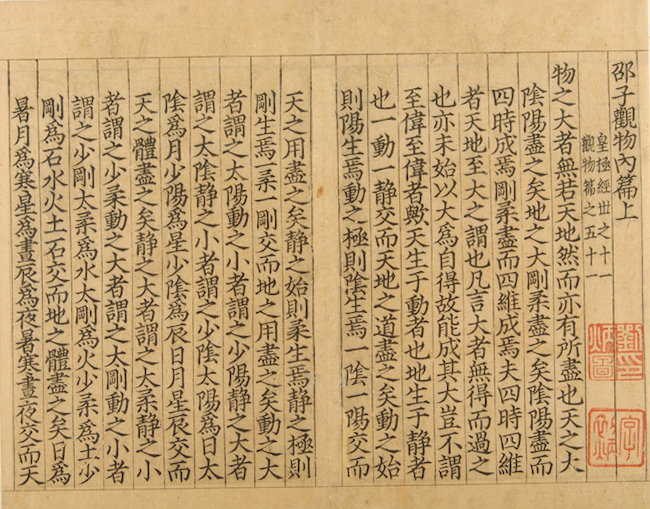 邵子觀物內篇上
皇極經世之十一
觀物篇之五十一
物之大者無若天地然而亦有所盡也天之大
陰陽盡之矣地之大剛柔盡之矣陰陽盡而
四時成焉剛柔盡而四維成焉夫四時四維
者天地至大之謂也凡言大者無得而過之
也亦未始以大爲自得故能成其大豈不謂
至偉至偉者歟天生于動者也地生于靜者
也一動一靜交而天地之道盡之矣動之始
則陽生焉動之極則陰生焉一陰一陽交而
天之用盡之矣靜之始則柔生焉靜之極則
剛生焉一柔一剛交而地之用盡之矣動之大
者謂之太陽動之小者謂之少陽靜之大者
謂之大陰静之小者謂之少陰太陽爲日太
陰爲月少陽爲星少陰爲辰日月星辰交而
天之體盡之矣静之大者謂之太柔静之小
者謂之少柔動之大者謂之大剛動之小者
謂之少剛太柔爲水太剛爲火少柔爲土少
剛爲石水火土石交而地之體盡之矣日爲
暑月爲寒星爲晝辰爲夜暑寒晝夜交而天